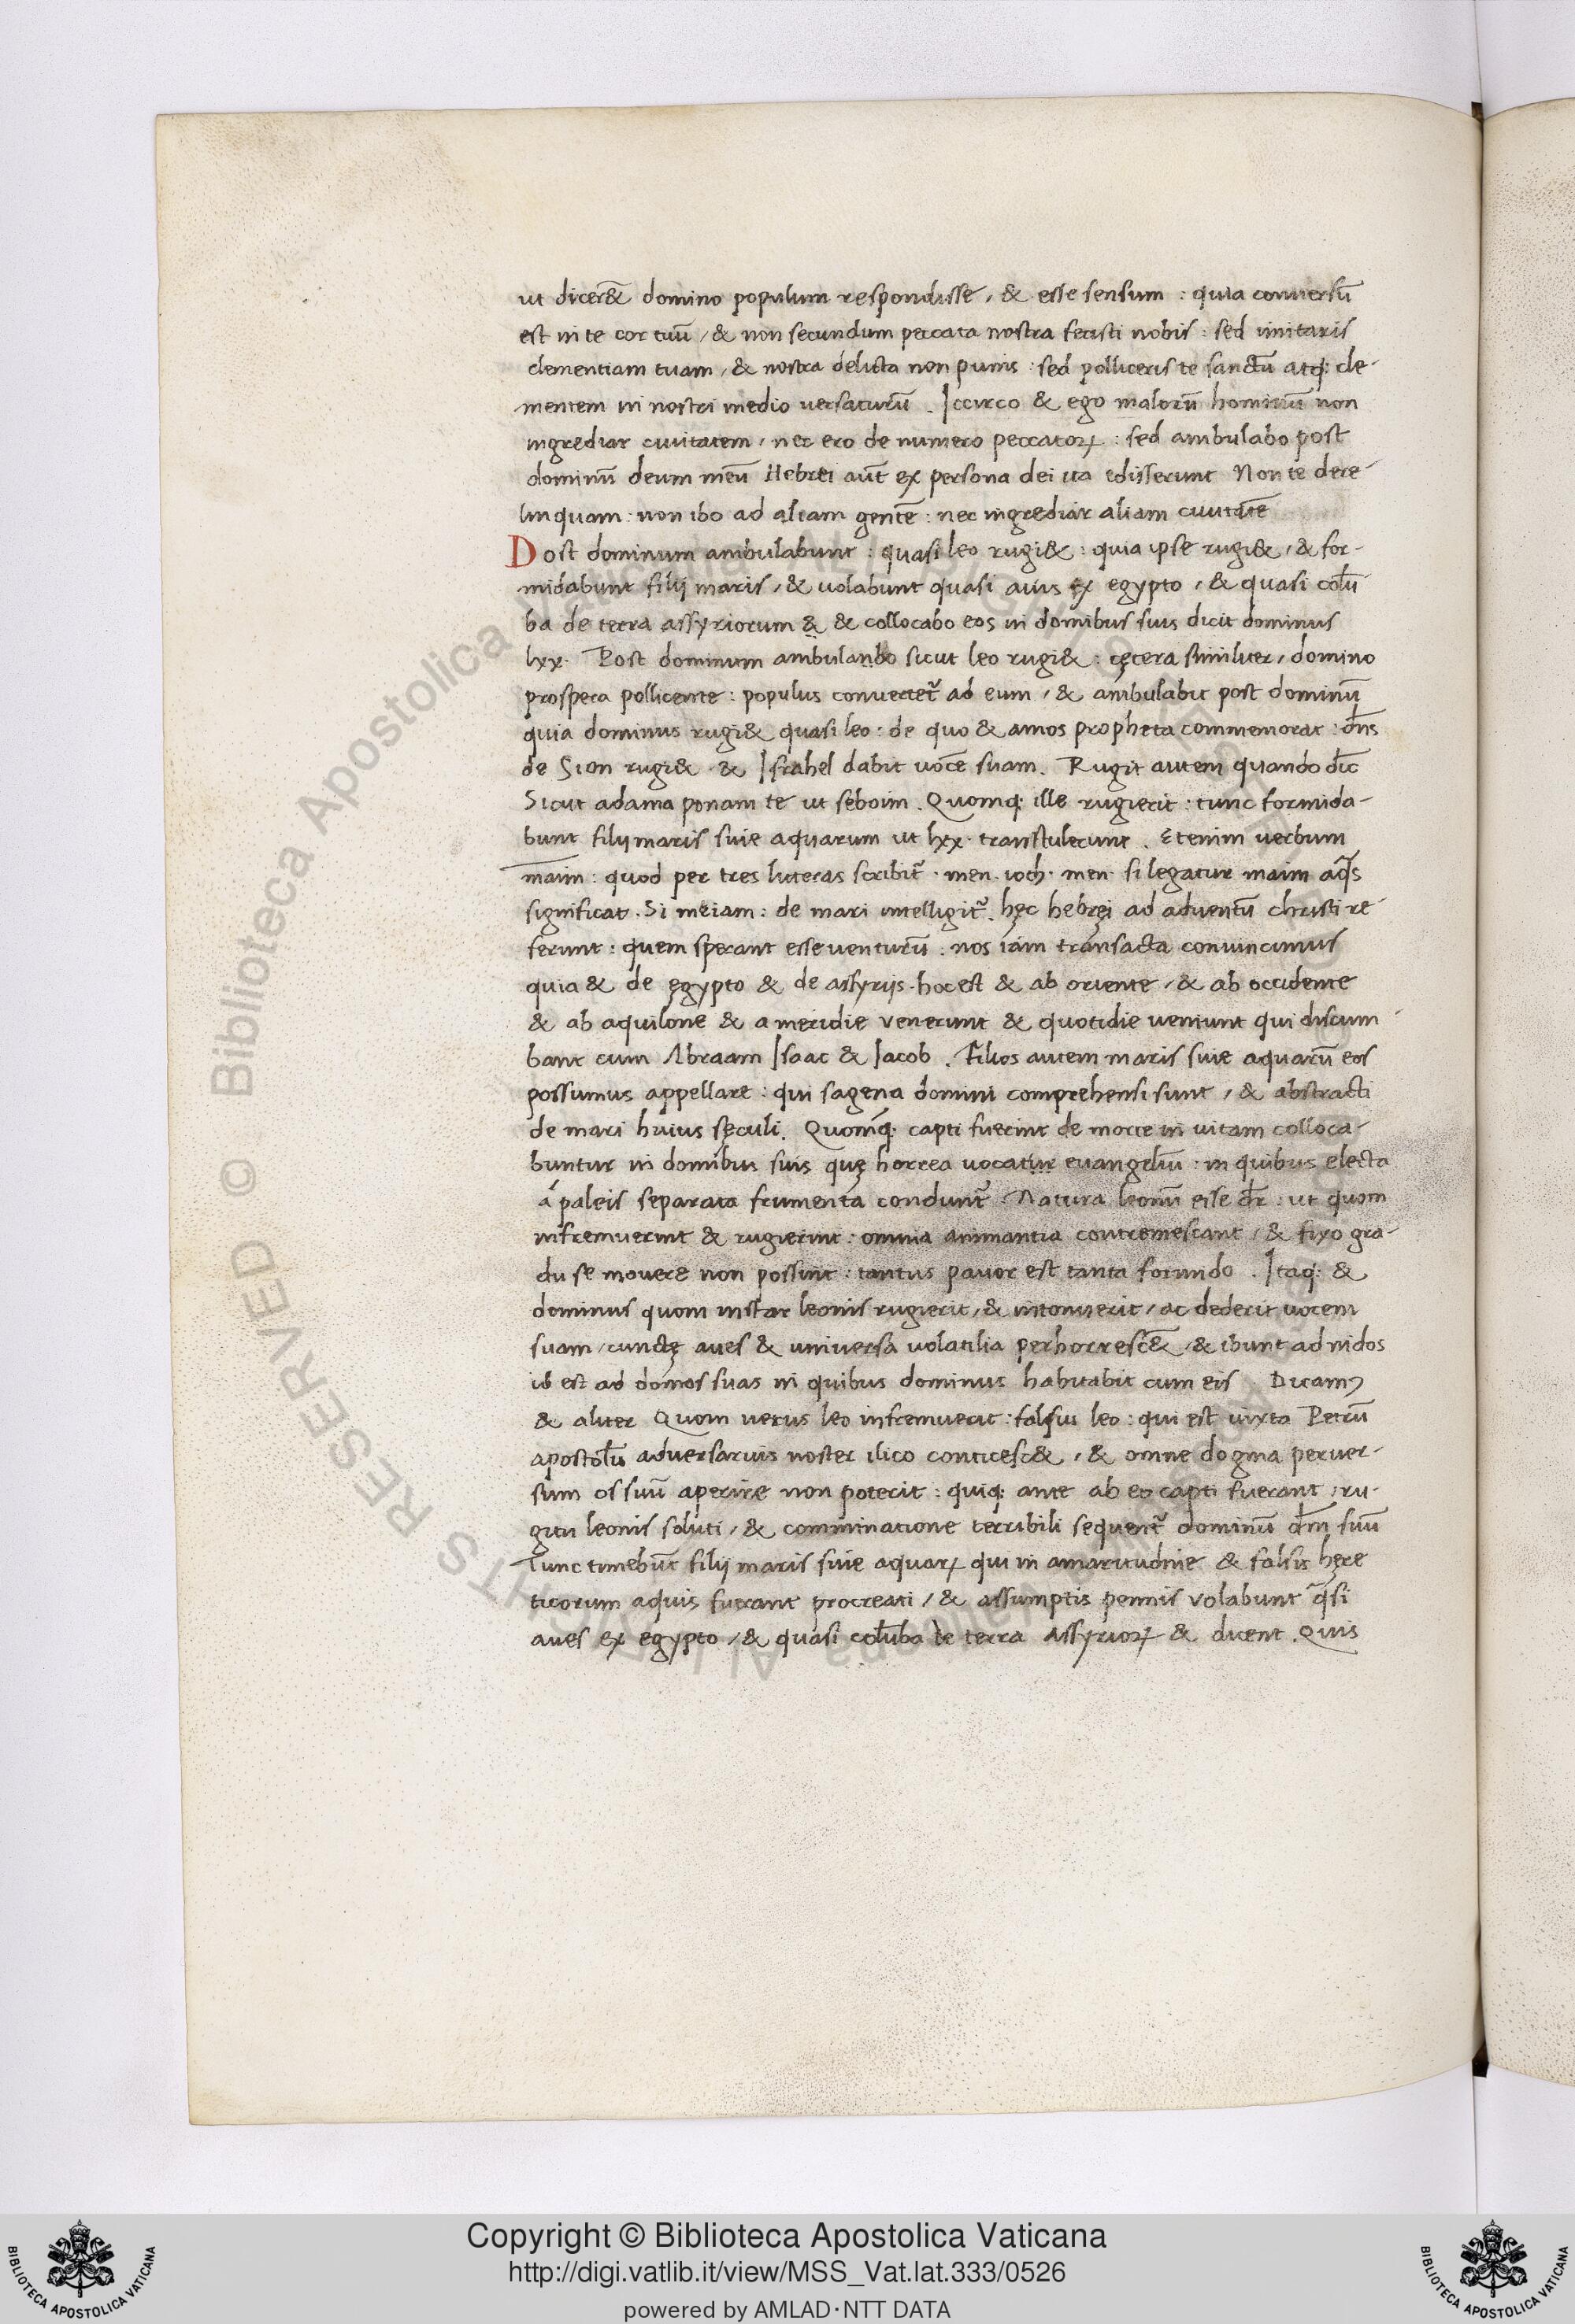 ut dicer&̄ domino populum respondisse, & esse sensum : quia conuersū
est in te cor tuū, & non secundum peccata nostra fecisti nobis : sed imitaris
clementiam tuam, & nostra delicta non punis : sed polliceris te sanctū atq; cle-
mentem in nostri medio uersaturū . Iccirco & ego malorū hominū non
ingrediar ciuitatem, nec ero de numero peccatoꝝ : sed ambulabo post
dominū deum meū Hebrei aūt ex persona dei ita edisserunt Non te dere-
linquam : non ibo ad aliam gentē : nec ingrediar aliam ciuitatē
Dost dominum ambulabunt : quasi leo rugi& : quia ipse rugi&, & for-
midabunt filij maris, & uolabunt quasi auis ex egypto, & quasi colū
ba de terra assyriorum & & collocabo eos in domibus suis dicit dominus
lxx. Post dominum ambulanbo sicut leo rugi& : cęcera similiter, domino
prospera pollicente : populus conuertet᷑ ad eum, & ambulabit post dominū
quia dominus rugi& quasi leo : de quo & amos propheta commemorat : dn̄s
de Sion rugi& & Israhel dabit uocē suam. Rugit autem quando dic̄
Sicut adama ponam te ut seboim . Quomq; ille rugierit : tunc formida-
bunt filij maris siue aquarum ut lxx. transtulerunt . Etenim uerbum
maim : quod per tres litteras scribit᷑ . men . ioth . men . si legatur maim aq̄s
significat. Si meiam : de mari intelligit᷑. hęc hebręi ad aduentū christi re-
ferunt : quem sperant esse uenturū : nos iam transacta conuincimus
quia & de ęgypto & de assyrijs . hoc est & ab oriente, & ab occidente
& ab aquilone & a meridie venerunt & quotidie ueniunt qui discum-
bant cum Abraam Isaac & Iacob . Filios autem maris siue aquarū eos
possumus appellare : qui sagena domini comprehensi sunt, & abstracti
de mari huius sęculi. Quomq; capti fuerint de morte in uitam colloca-
buntur in domibus suis quę horrea uocatur euangeliū : in quibus electa
á paleis separata frumenta condunt᷑ . Natura leonū esse dr̄ : ut quom
infremuerint & rugierint : omnia animantia contremescant, & fixo gra-
du se mouere non possint : tantus pauor est tanta formido . Itaq; &
dominus quom instar leonis rugierit, & intonuerit, ac dederit uocem
suam, cunctę aues & uniuersa uolatilia perhorresc&̄, & ibunt ad nidos
id est ad domos suas in quibus dominus habitabit cum eis Dicamꝰ
& aliter Quom uerus leo infremuerit : falsus leo : qui est iuxta Petrū
apostolū aduersarius noster ilico conticesc&, & omne dogma peruer-
sum os suū aperire non poterit : quiq; ante ab eo capti fuerant, ru-
gitu leonis soluti, & comminatione terribili sequent᷑ dominū dm̄ suū
Tunc timebūt filij maris siue aquaꝝ qui in amaritudine & falsis hęre
ticorum aquis fuerant procreati, & assumptis pennis volabunt q̄si
aues ex egypto, & quasi colūba de terra Assyrioꝝ & dicent . Quis
Copyright © Biblioteca Apostolica Vaticana
http://digi.vatlib.it/view/MSS_Vat.lat.333/0526
powered by AMLAD·NTT DATA